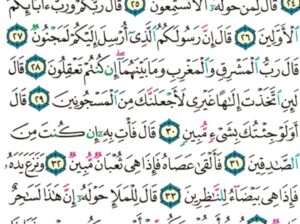 قَالَ لِمَنْ حَوْلَهُۥٓ أَلَا تَسْتَمِعُونَ ٢٥ قَالَ رَبُّكُمْ وَرَبُّ ءَابَآئِكُمُ
ٱلْأَوَّلِينَ ٢٦ قَالَ إِنَّ رَسُولَكُمُ ٱلَّذِىٓ أُرْسِلَ إِلَيْكُمْ لَمَجْنُونٌ ٢٧
قَالَ رَبُّ ٱلْمَشْرِقِ وَٱلْمَغْرِبِ وَمَا بَيْنَهُمَآ إِن كُنتُمْ تَعْقِلُونَ ٢٨ قَالَ
لَئِنِ ٱتَّخَذْتَ إِلَٰهًا غَيْرِى لَأَجْعَلَنَّكَ مِنَ ٱلْمَسْجُونِينَ ٢٩ قَالَ
أَوَلَوْ جِئْتُكَ بِشَىْءٍ مُّبِينٍ ٣٠ قَالَ فَأْتِ بِهِۦٓ إِن كُنتَ مِنَ
ٱلصَّٰدِقِينَ ٣١ فَأَلْقَىٰ عَصَاهُ فَإِذَا هِىَ ثُعْبَانٌ مُّبِينٌ ٣٢ وَنَزَعَ يَدَهُۥ
فَإِذَا هِىَ بَيْضَآءُ لِلنَّٰظِرِينَ ٣٣ قَالَ لِلْمَلَإِ حَوْلَهُۥٓ إِنَّ هَٰذَا لَسَٰحِرٌ